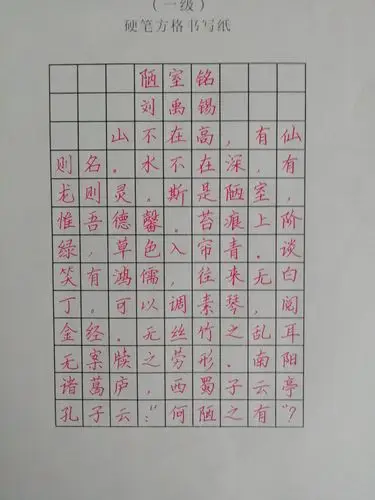 （一级）
硬笔方格书写纸
陋室铭
刘禹锡
山不在高，有仙
则名。水不在深，有
龙则灵。斯是陋室，
惟吾德馨。苔痕上阶
绿，草色入帘青。谈
笑有鸿儒，往来无白
丁。可以调素琴，阅
金经。无丝竹之乱耳
无案牍之劳形。南阳
诸葛庐，西蜀子云亭
孔子云：“何陋之有”？